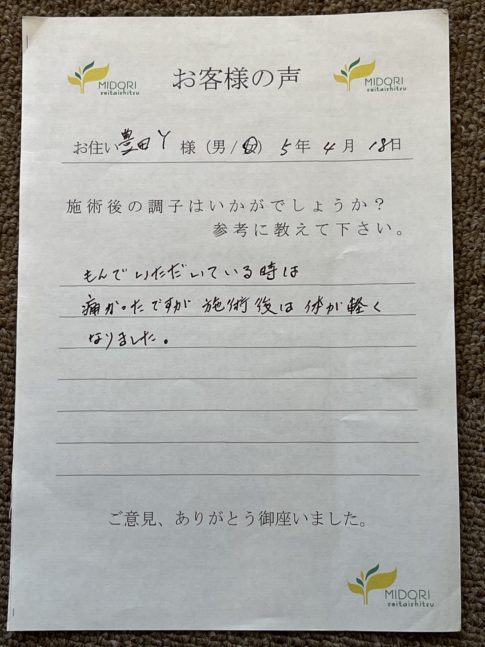 MIDORI
seitaishitsu
お客様の声
MIDORI
seitaishitsu
お住い 豊田 Y 様 (男/女) 5年 4月 18日
施術後の調子はいかがでしょうか?
参考に教えて下さい。
もんでいただいている時は
痛かったですが 施術後は 体が軽く
なりました。
ご意見、ありがとう御座いました。
MIDORI
seitaishitsu